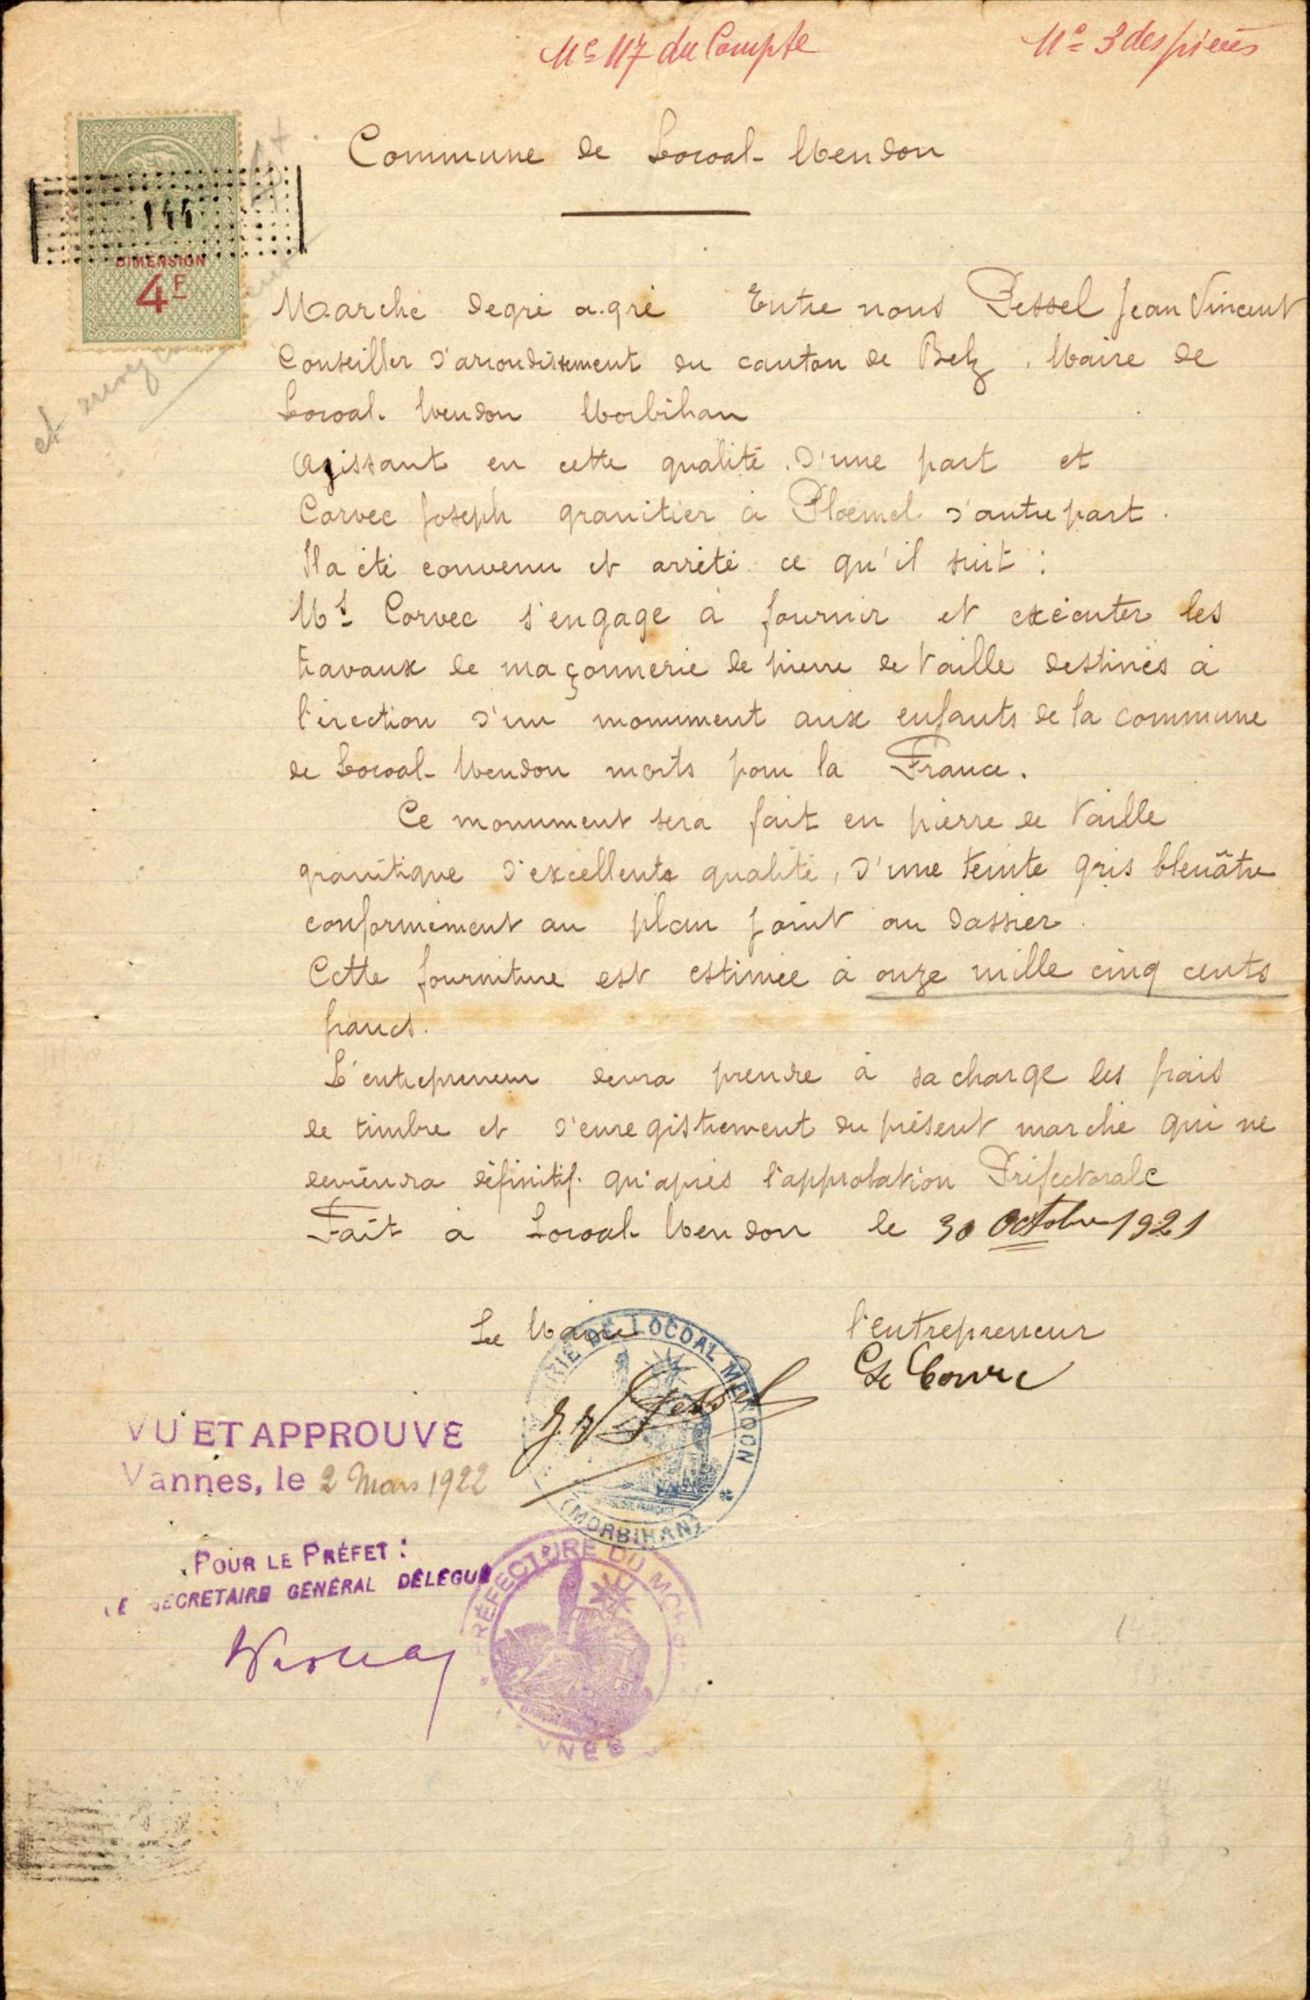 Nº 117 du Compte
Nº 3 des pièces
Commune de Locoal-Mendon
144
DIMENSION
4F
et
Marché de gré à gré Entre nous Jessel Jean Vincent
Conseiller d'arrondissement du canton de Belz, Maire de
Locoal-Mendon Morbihan
Agissant en cette qualité d'une part et
Corvec Joseph granitier à Ploemel d'autre part.
Il a été convenu et arrêté ce qu'il suit :
Mr Corvec s'engage à fournir et exécuter les
travaux de maçonnerie de pierre de taille destinés à
l'érection d'un monument aux enfants de la commune
de Locoal-Mendon morts pour la France.
Ce monument sera fait en pierre de taille
granitique d'excellente qualité, d'une teinte gris bleuâtre
conformément au plan joint au dossier.
Cette fourniture est estimée à onze mille cinq cents
francs.
L'entrepreneur devra prendre à sa charge les frais
de timbre et d'enregistrement du présent marché qui ne
deviendra définitif qu'après l'approbation Préfectorale
Fait à Locoal-Mendon le 30 Octobre 1921
Le Maire
l'entrepreneur
MAIRIE DE LOCOAL MENDON
(MORBIHAN)
J V Jessel
VU ET APPROUVE
Vannes, le 2 Mars 1922
POUR LE PRÉFET :
LE SECRETAIRE GÉNÉRAL DÉLÉGUÉ
PRÉFECTURE DU MORBIHAN
VANNES